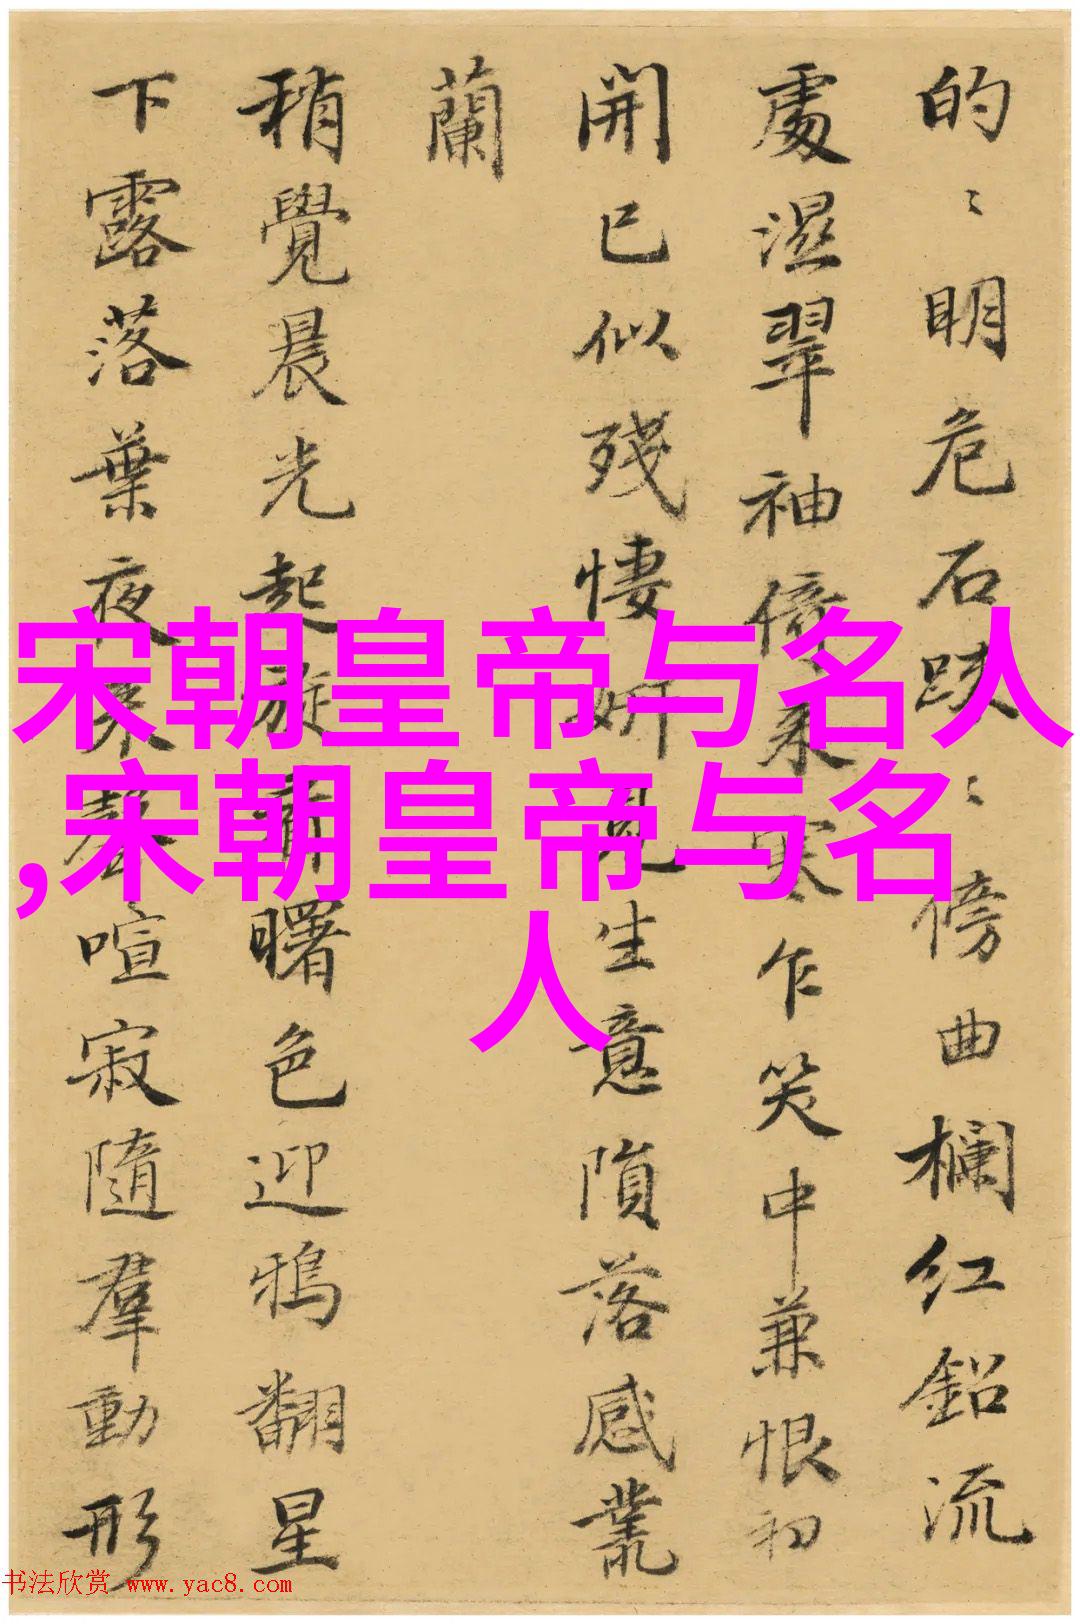 的〻明危石跌〻傍曲欄红鉛流
處濕翠袖倚来寒乍笑中兼恨初
開已似残悽妍見生意隕落感叢
蘭
稍覺晨光起旋曙色迎鴉翻星
下露落葉夜来聲喧寂隨羣動形
宋朝皇帝与名人
,宋朝皇帝与名
人
书法欣赏 www.yac8.com